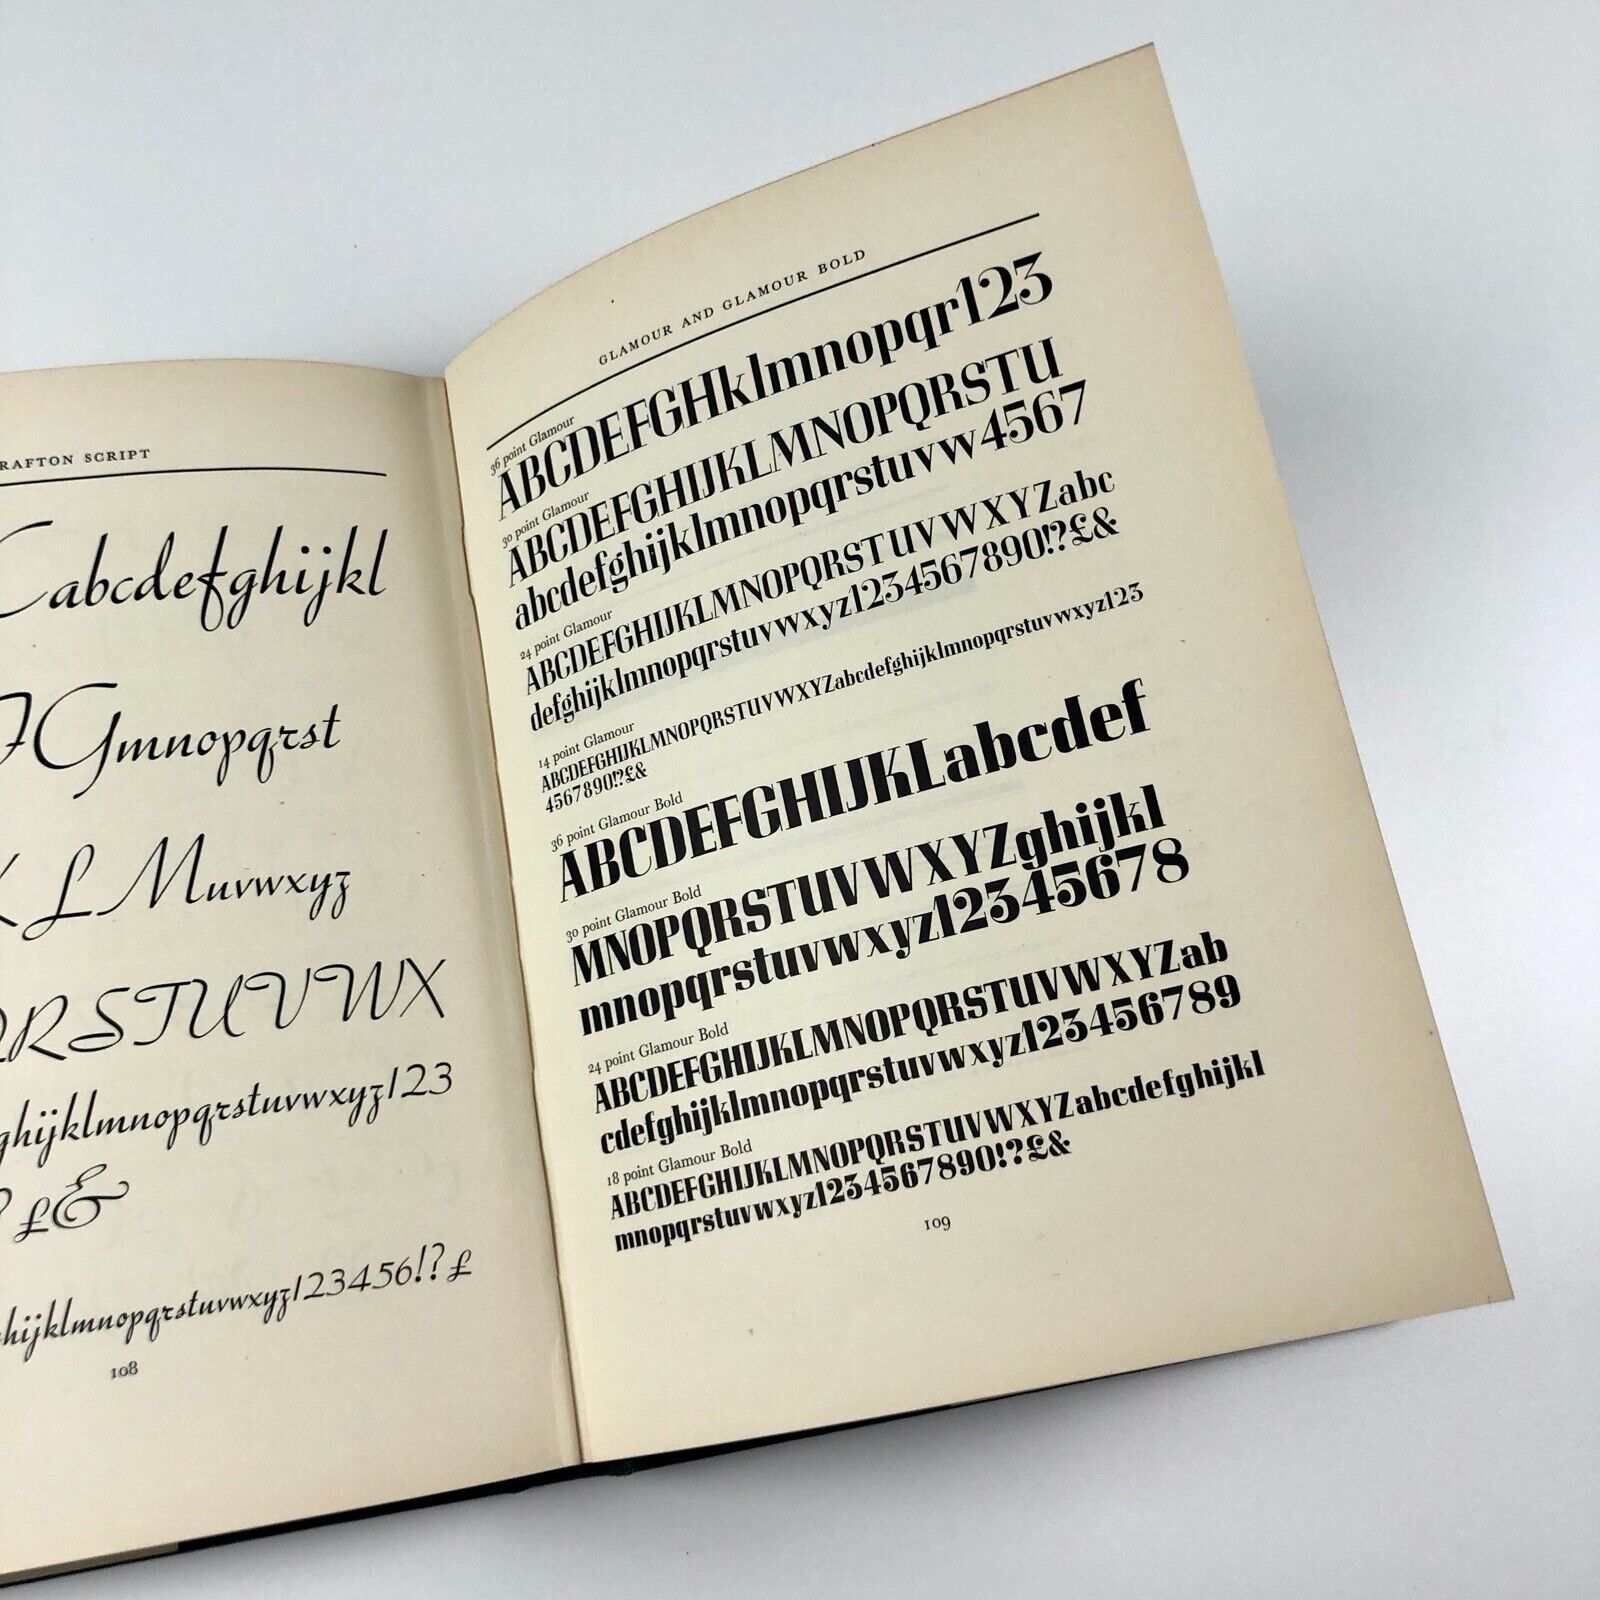 RAFTON SCRIPT
Cabcdefghijkl
FGmnopqrst
K L Muvwxyz
QRSTUVWX
ghijklmnopqrstuvwxyz123
? £&
hijklmnopqrstuvwxyz123456!? £
108
GLAMOUR AND GLAMOUR BOLD
36 point Glamour
ABCDEFGHklmnopqr123
30 point Glamour
ABCDEFGHIJKLMNOPQRSTU
abcdefghijklmnopqrstuvw4567
24 point Glamour
ABCDEFGHIJKLMNOPQRSTUVWXYZabc
defghijklmnopqrstuvwxyz1234567890!?£&
14 point Glamour
ABCDEFGHIJKLMNOPQRSTUVWXYZabcdefghijklmnopqrstuvwxyz123
4567890!?£&
36 point Glamour Bold
ABCDEFGHIJKLabcdef
30 point Glamour Bold
MNOPQRSTUVWXYZghijkl
mnopqrstuvwxyz12345678
24 point Glamour Bold
ABCDEFGHIJKLMNOPQRSTUVWXYZab
cdefghijklmnopqrstuvwxyz123456789
18 point Glamour Bold
ABCDEFGHIJKLMNOPQRSTUVWXYZabcdefghijkl
mnopqrstuvwxyz1234567890!?£&
109